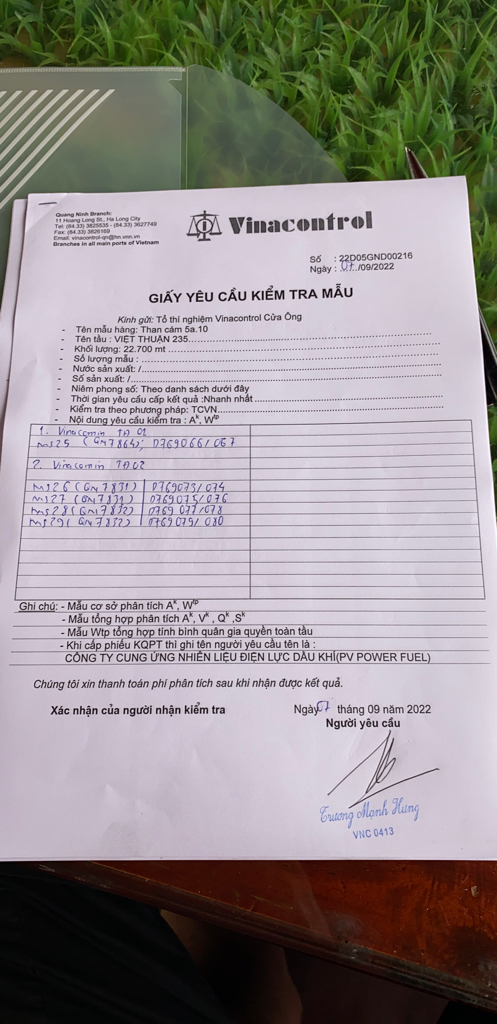 Quang Ninh Branch:
11 Hoang Long St., Ha Long City
Tel: (84.33) 3825535 - (84.33) 3627749
Fax: (84.33) 3826169
Email: vinacontrol-qn@hn.vnn.vn
Branches in all main ports of Vietnam
Vinacontrol
Số : 22D05GND00216
Ngày : 07../09/2022
GIẤY YÊU CẦU KIỂM TRA MẪU
Kính gửi: Tổ thí nghiệm Vinacontrol Cửa Ông
- Tên mẫu hàng: Than cám 5a.10
- Tên tầu : VIỆT THUẬN 235
- Khối lượng: 22.700 mt
- Số lượng mẫu :
- Nước sản xuất: /
- Số sản xuất: /
- Niêm phong số: Theo danh sách dưới đây
- Thời gian yêu cầu cấp kết quả :Nhanh nhất
- Kiểm tra theo phương pháp: TCVN
- Nội dung yêu cầu kiểm tra : Aᵏ, Wᵗᵖ
1. Vinacomin TĐ 01
MS25 (GN7864); 0769066/067
2. Vinacomin TĐ 02
MS26 (GN7831) 0769073/074
MS27 (GN7831) 0769075/076
MS28 (GN7832) 0769077/078
MS29 (GN7832) 0769079/080
Ghi chú: - Mẫu cơ sở phân tích Aᵏ, Wᵗᵖ
- Mẫu tổng hợp phân tích Aᵏ, Vᵏ , Qᵏ ,Sᵏ
- Mẫu Wtp tổng hợp tính bình quân gia quyền toàn tầu
- Khi cấp phiếu KQPT thì ghi tên người yêu cầu tên là :
CÔNG TY CUNG ỨNG NHIÊN LIỆU ĐIỆN LỰC DẦU KHÍ(PV POWER FUEL)
Chúng tôi xin thanh toán phí phân tích sau khi nhận được kết quả.
Xác nhận của người nhận kiểm tra
Ngày 07 tháng 09 năm 2022
Người yêu cầu
Trương Mạnh Hùng
VNC 0413